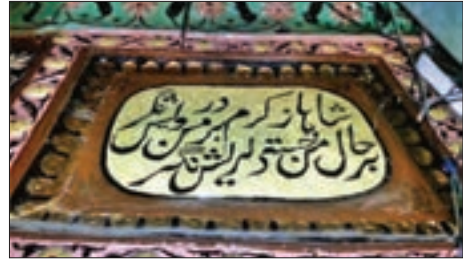 شاہا ز کرم بر من درویش نگر
بر حال من خستہ دلریش نگر